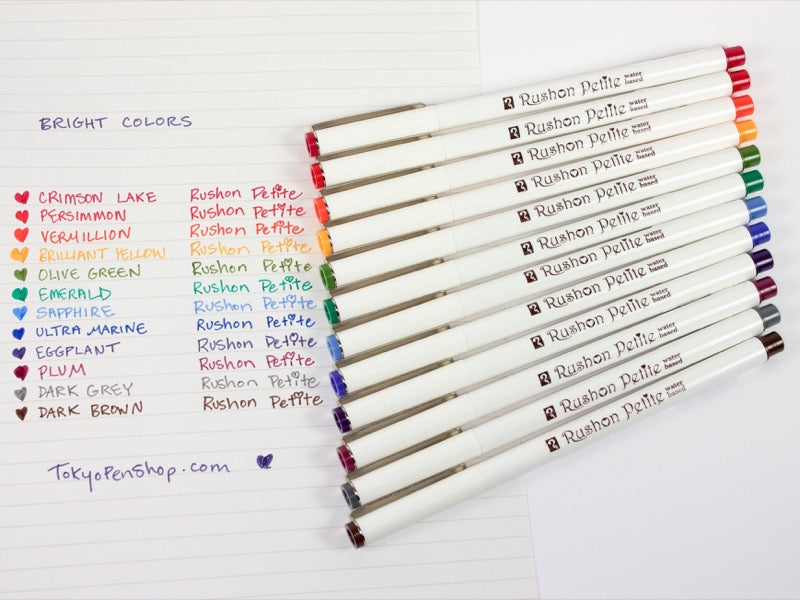 BRIGHT COLORS
CRIMSON LAKE Rushon Petite
PERSIMMON Rushon Petite
VERMILLION Rushon Petite
BRILLIANT YELLOW Rushon Petite
OLIVE GREEN Rushon Petite
EMERALD Rushon Petite
SAPPHIRE Rushon Petite
ULTRA MARINE Rushon Petite
EGGPLANT Rushon Petite
PLUM Rushon Petite
DARK GREY Rushon Petite
DARK BROWN Rushon Petite
TokyoPenShop.com
Rushon Petite water based
Rushon Petite water based
Rushon Petite water based
Rushon Petite water based
Rushon Petite water based
Rushon Petite water based
Rushon Petite water based
Rushon Petite water based
Rushon Petite water based
Rushon Petite water based
Rushon Petite water based
Rushon Petite water based